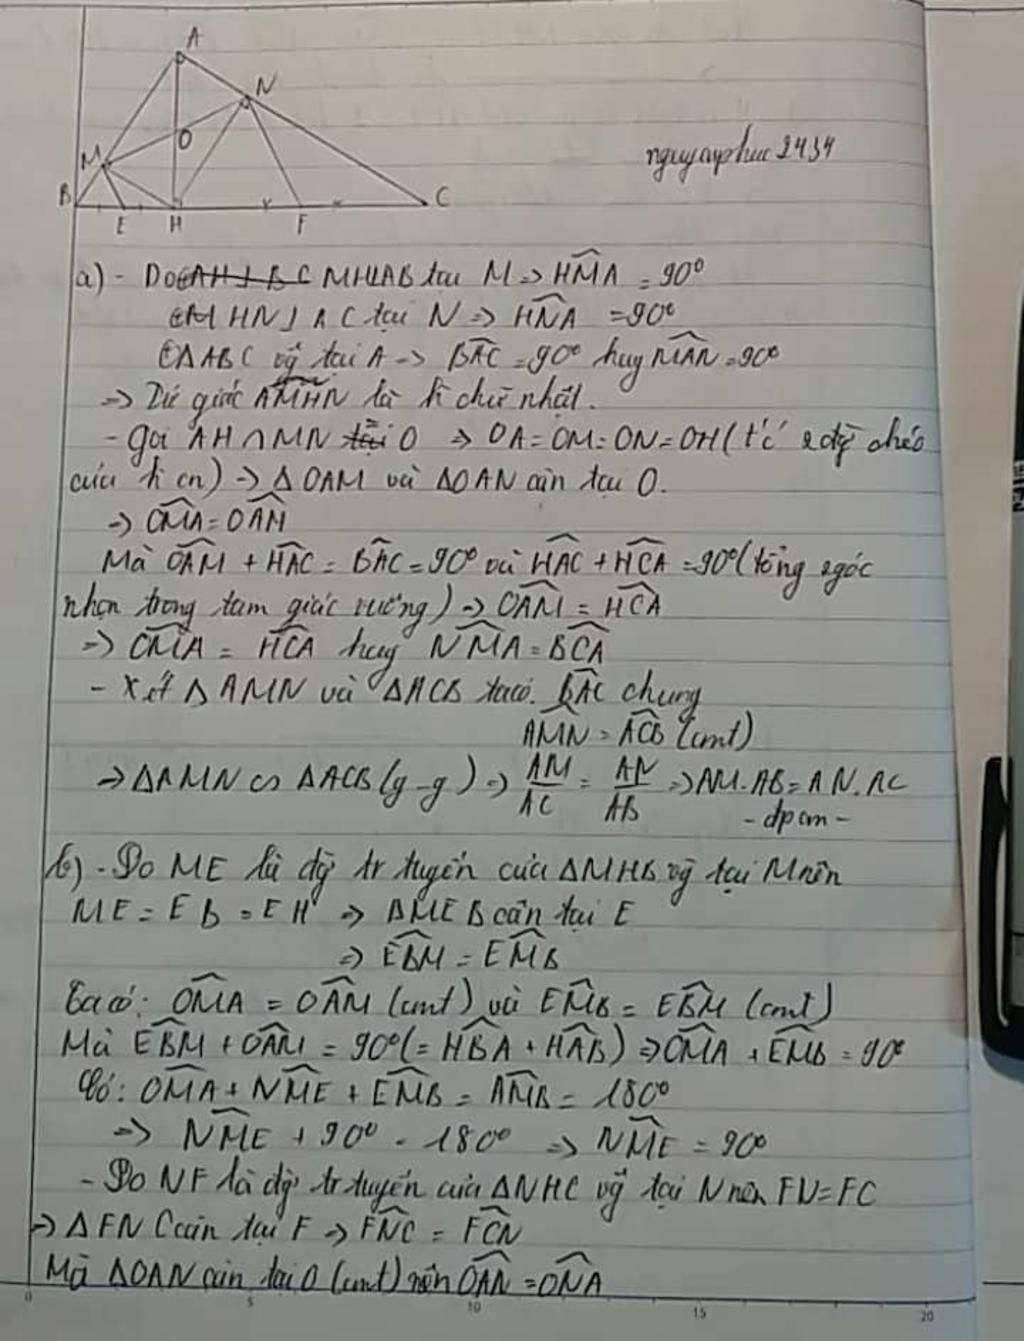 A
N
M
O
B
E
H
F
C
nguyayphuc2434
a) - Do MH⊥AB tại M => HMA = 90°
HN⊥AC tại N => HNA = 90°
ΔABC vg̃ tại A -> BAC = 90° hay MAN = 90°
=> Tứ giác AMHN là h chữ nhật.
- Gọi AH∩MN tại O => OA = OM = ON = OH (t/c 2 đg̀ chéo
của h cn) -> ΔOAM và ΔOAN cân tại O.
-> OMA = OAM
Mà OAM + HAC = BAC = 90° và HAC + HCA = 90° (tổng 2 góc
nhọn trong tam giác vuông) -> OAM = HCA
-> OMA = HCA hay NMA = BCA
- Xét ΔAMN và ΔACB ta có. BAC chung
AMN = ACB (cmt)
=> ΔAMN ∽ ΔACB (g-g) => AM/AC = AN/AB => AM.AB = AN.AC
- dpcm -
b) - Do ME là đg̀ tr tuyến của ΔMHB vg̃ tại M nên
ME = EB = EH => ΔMEB cân tại E
=> EBM = EMB
Ta có: OMA = OAM (cmt) và EMB = EBM (cmt)
Mà EBM + OAM = 90° (= HBA + HAB) => OMA + EMB = 90°
Có: OMA + NME + EMB = AMB = 180°
=> NME + 90° = 180° => NME = 90°
- Do NF là đg̀ tr tuyến của ΔNHC vg̃ tại N nên FN = FC
-> ΔFNC cân tại F -> FNC = FCN
Mà ΔOAN cân tại O (cmt) nên OAN = ONA
0 5 10 15 20